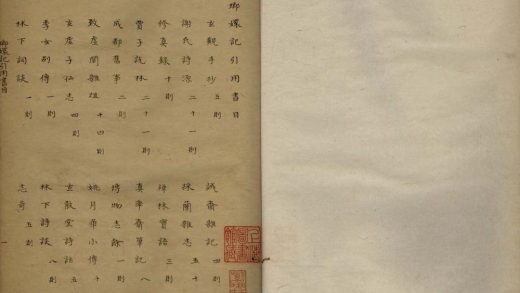 瑯嬛記引用書目
玄觀手抄 五則
謝氏詩源 二十一則
修真錄 十則
賈子說林 二十一則
成都舊事 二則
致虛閣雜俎 十四則
玄虛子仙志 四則
季女別傳 一則
林下詞談 一則
誠齋雜記 四則
採蘭雜志 五十
緝林寶語 三則
真率齋筆記 八
博物志餘 一則
姚月華小傳 十
玄散堂詩話 五
林下詩談 八則
志奇 五則
瑯嬛記引用書目
一